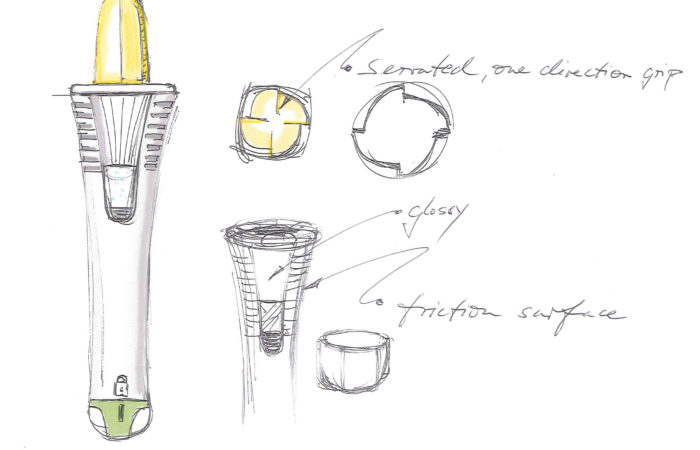 serrated, one direction grip
glossy
friction surface